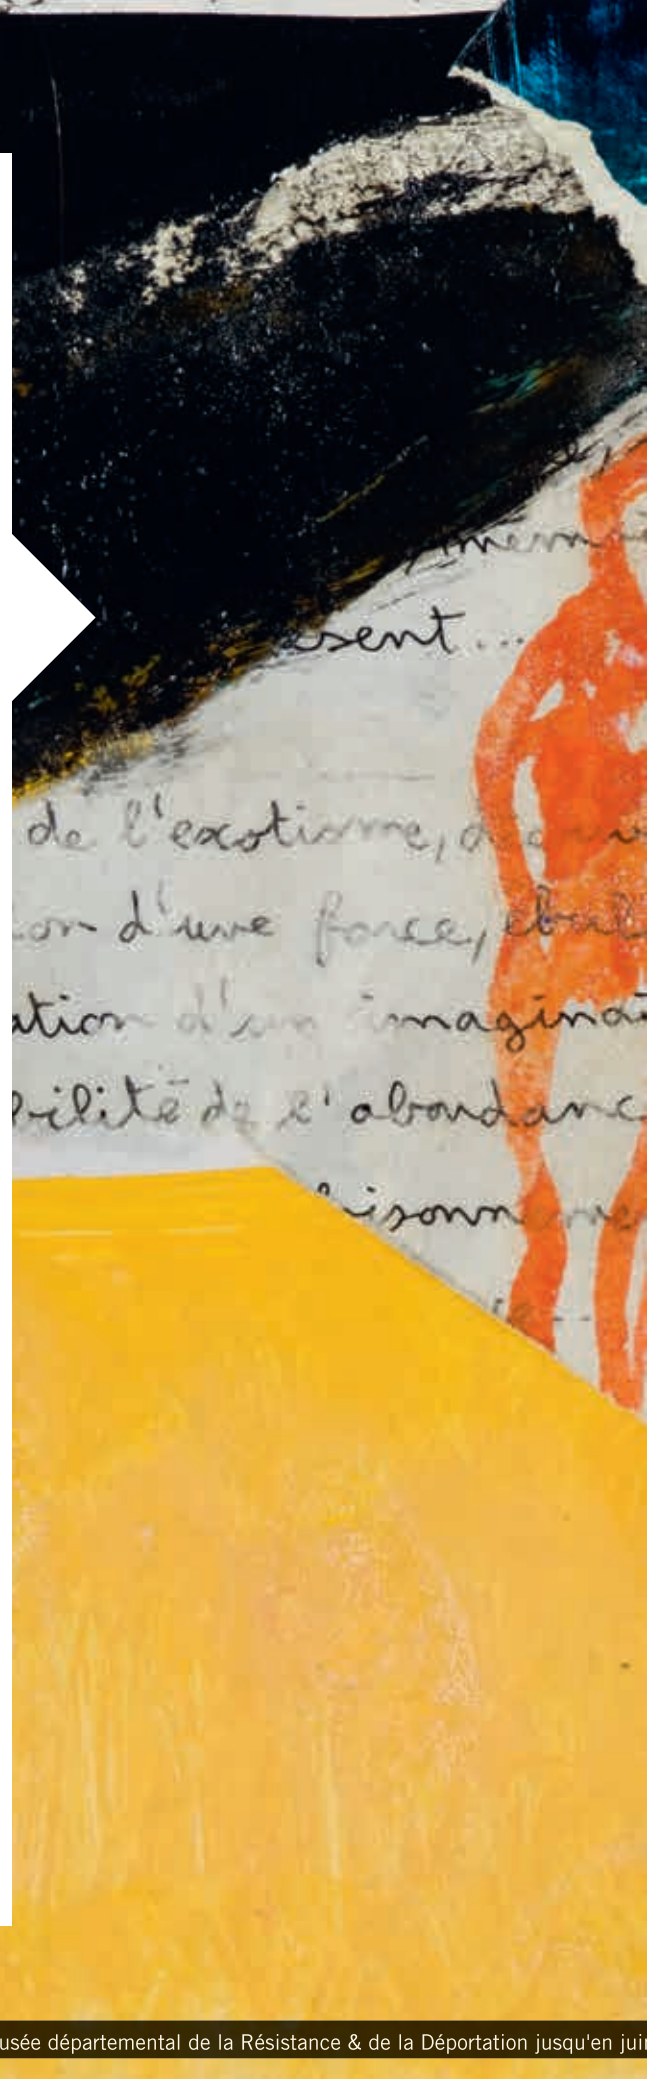 sent...
de l'exotisme,
ion d'une force, ebul
ation d'un imaginai
bilité de l'abondanc
isonneme
usée départemental de la Résistance & de la Déportation jusqu'en juin